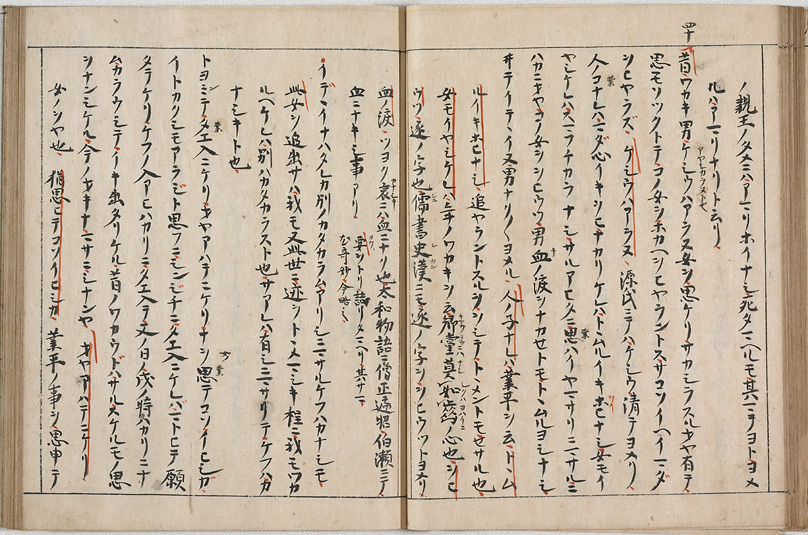 ノ親王ノタメニハアマリホイナシ死タマヘルモ其マヽヲヨトヨメ
ルハアマリナリト云リ
四十 昔ワカキ男ケシウハアラヌ女ヲ思ケリサカシラスルオヤ有テ
アヤシカラスト也
思モソツクトテコノ女ヲホカヘヲヒヤラントスサコソイヘイマダ
ヲヒヤラズ ケシウハアラヌ 源氏ニテハケシウ清テヨメリ
人ノコナレハマダ心イキヲヒナカリケレハトヽムルイキホヒナシ女モイ
ヤシケレハスマフチカラナシサルアヒタニ思ハイヤマサリニマサルニ
ハカニオヤコノ女ヲヲヒウツ男血ノ涙ヲナカセトモトヽムルヨシナシ
井テイテヽイヌ男ナク〱ヨメル 人ノ子ナレハ 業平ヲ云 トヽム
ルイキホヒナシ 追ヤラントスルヲシヰテトヽメントモセサル也
女モイヤシケレハ 年ノワカキヲ云 莫如ノ心也 ヲヒ
ウツ 逐ノ字也儒書史漢ニモ逐ノ字ヲヲヒウツトヨメリ
血ノ涙 ツヨク哀ニハ血ニナリ也太和物語ニ僧正遍昭泊瀬ニテ
血ニナキシ事アリ
イデヽイナハタレカ別ノカタカラムアリシニマサルケフハカナシモ
此女ヲ追出サハ我モ又此世ニ迹ヲトヽメマシキ程ニ我モワカ
ルヘケレハ別ハカタカラスト也サアレハ有シニマサリテケフハカ
ナシキト也
トヨミテタエ入ニケリオヤアハテニケリナヲ思テコソイヒシガ
イトカクシモアラジト思フニシンジチニタエ入ニケレバマトヒテ願
タテケリケフノ入アヒハカリニタエ入テ又ノ日ノ戌ノ時ハカリニナ
ムカラウシテイキ出タリケル昔ノワカウドハサルスケルモノ思
ヲナンシケル今ノオキナマサニシナンヤ オヤアハテニケリ
女ノヲヤ也 猶思ヒテコソイヒシカ 業平ノ事ヲ思申テ